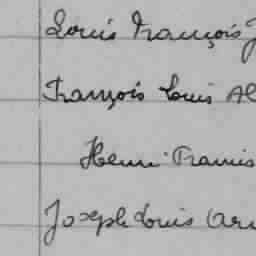 Louis François J
François Louis Al
Henri Francis
Joseph Louis Car